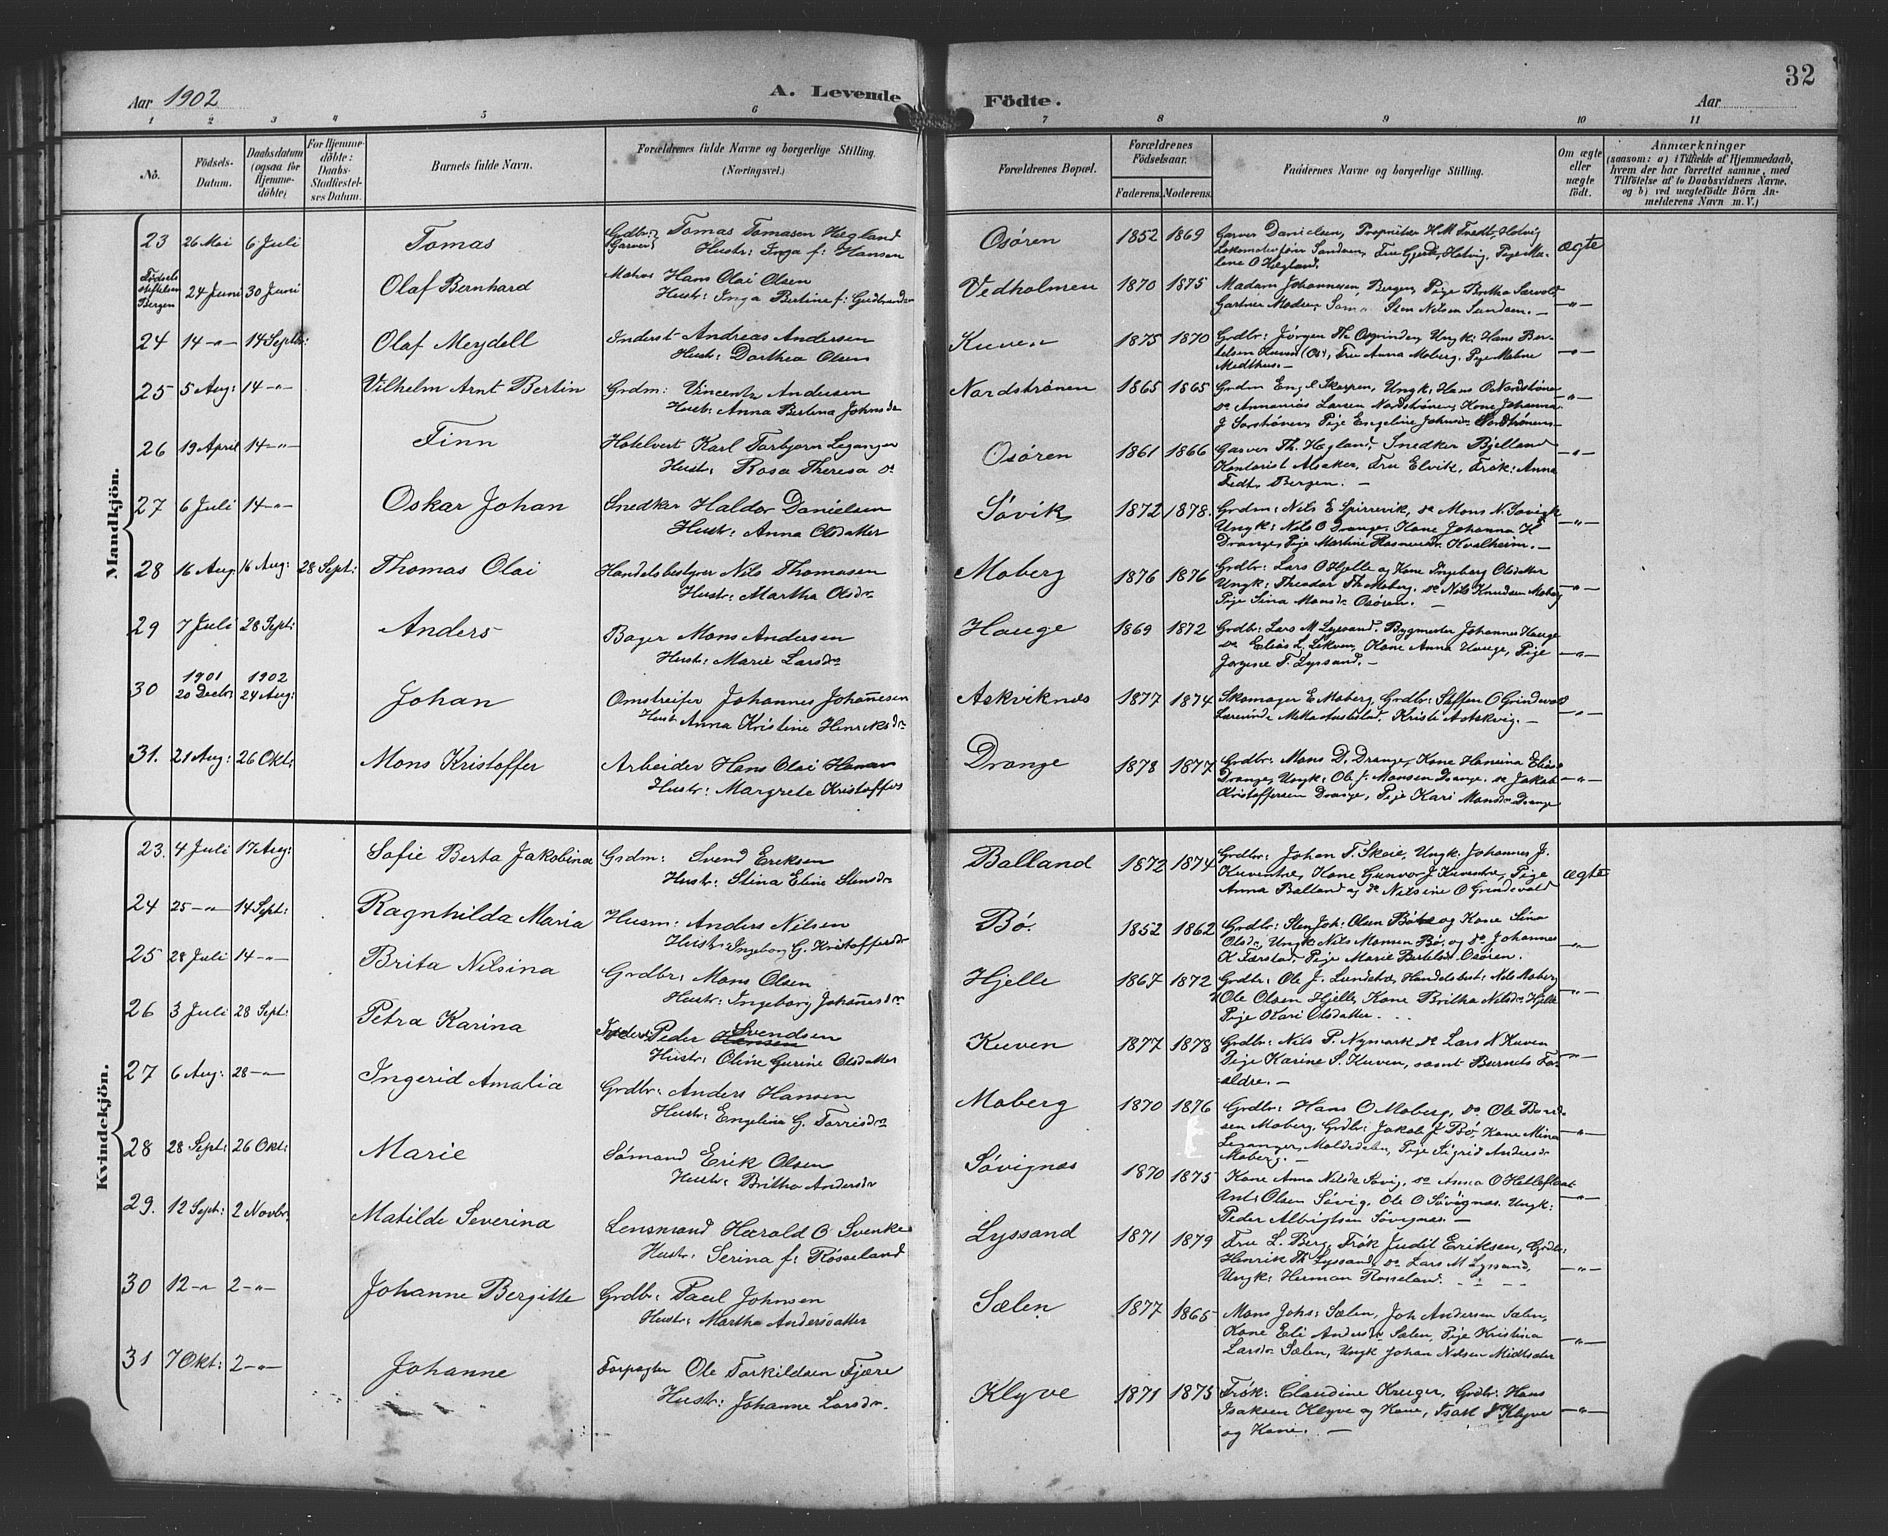 Aar 1902 A. Levende Födte. Aar 32
1 2 3 4 5 6 7 8 9 10 11
No. Födsels-Datum. Daabsdatum (ogsaa for Hjemme-döbte) For Hjemme-döbte: Daabs-Stadfæstel-ses Datum. Barnets fulde Navn. Forældrenes fulde Navne og borgerlige Stilling. (Næringsvei.) Forældrenes Bopæl. Forældrenes Födselsaar. Faderens. Moderens. Faddernes Navne og borgerlige Stilling. Om ægte eller uægte födt. Anmærkninger (saasom: a) i Tilfælde af Hjemmedaab, hvem der har forrettet samme, med Tilföielse af to Daabsvidners Navne, og b) ved uægtefödte Börn Anmelderens Navn m. V.)
Mandkjön.
23 26 Mai 6 Juli Tomas Grdbr: Garver Tomas Tomasen Hegland Osören 1852 1869 Garver Danielsen, Proprietær H M Tvedt, Hotvig ægte
Hustr: Inga f: Hansen Lokomotivförer Sandven, Fru Gjerd
lene O Hegland.
Födsels stiftelsen Bergen 24 Juni 30 Juni Olaf Bernhard Matros Hans Olai Olsen Vedholmen 1870 1875 Madam Johannesen, Bergen, Pige Britha Særvold -"-
Hustr: Inga Bertine f: Gartner Sten Nilsen Sundöen. -
24 14 -"- 14 Septbr: Olaf Meydell Inderst Andreas Andersen Kuven 1875 1870 Grdbr: Jörgen Th Osgrinden, Ungk: Hans Ber- -"-
Hustr: Dorthea Olsen telsen Kuven (Os), Fru Anna Moberg, Pige Malene
Midthus. -
25 5 Aug: 14 -"- Vilhelm Arnt Bertin Grdm: Vincents Andersen Nordströnen 1865 1865 Grdm Engel Skorpen, Ungk: Hans O Nordströnen -"-
Hustr: Anna Bertina Johnsdr do Annanias Larsen Nordströnen, Kone Johanna
J Sörströnen, Pige Engeline Johnsdr Nordströnen
26 19 April 14 -"- Finn Hotelvert Karl Torbjørn Leganger Osören 1861 1866 Garver Th. Hegland, Snedker Bjelland -"-
Hustr: Rosa Theresa do Kontorist Alsaker, Fru Elvik, Frök: Anna
Tvedt, Bergen. -
27 6 Juli 14 -"- Oskar Johan Snedker Haldor Danielsen Sövik 1872 1878. Grdm: Nils E Spirrevik, do Mons N. Søvigk -"-
Hustr: Anna Olsdatter Ungk: Nils O Drange, Kone Johanna
Drange, Pige Martine Rasmusdr Kvalheim. -
28 16 Aug 16 Aug: 28 Sept: Thomas Olai Handelsbestyrer Nils Thomasen Moberg 1876 1876 Grdbr: Lars O Hjelle og Kone Ingeborg Olsdatter -"-
Hustr: Martha Olsdr Ungk: Theodor Th Moberg, do Nils Knudsen Moberg
Pige Sina Monsdr Osören. -
29 7 Juli 28 Sept: Anders Bager Mons Andersen Hauge 1869 1872 Grdbr: Lars M Lyssand, Bygmester Johannes Hauge -"-
Hustr: Marie Larsdr do Elias L. Lekven, Kone Anna Hauge, Pige
Jorgine T. Lyssand. -
30 1901 20 Decbr 1902 24 Aug: Johan Omstreifer Johannes Johannesen Askviknæs 1877 1874 Skomager E Moberg, Grdbr: Steffen O Grindevold -"-
Hustr: Anna Kristine Henriksdr Kristi A Askvig. -
31. 21 Aug: 26 Okt: Mons Kristoffer Arbeider Hans Olai Hansen Drange 1878 1877 Grdbr: Mons D. Drange, Kone Hansina Elias -"-
Hustr: Margrete Kristoffers Drange, Ungk: Ole J. Monsen Drange, do Jakob
Kristoffersen Drange, Pige Kari Monsdr Drange
Kvindekjön.
23. 4 Juli 17 Aug: Sofie Berta Jakobina Grdm: Svend Eriksen Balland 1872 1874 Grdbr: Johan T. Skeie, Ungk: Johannes J. ægte
Hustr: Stina Eline Stensdr Kuventræ, Kone Gunvor J Kuventræ, Pige
Anna Balland og do Nilsine O Grindevold
24 25 -"- 14 Sept: Ragnhilda Maria Husm: Anders Nilsen Bö. 1852 1862 Grdbr: Sten Joh: Olsen og Kone Sina -"-
Hustr: Ingeborg G. Kristoffersdr Olsdr, Ungk: Nils Monsen Bö, og do Johannes
H Færstad, Pige Marie Bertelsdr Osören.
25 28 Juli 14 -"- Brita Nilsina Grdbr: Mons Olsen Hjelle 1867 1872 Grdbr: Ole J. Lundetræ, Handelsbest: Nils Moberg -"-
Hustr: Ingeborg Johannesdr Ole Olsen Hjelle, Kone Britha Nilsdr Hjelle
Pige Kari Olsdatter.
26 3 Juli 28 Sept: Petra Karina Peder Hansen Svendsen Kuven 1877 1878 Grdbr: Nils P. Nymark do Lars N Kuven -"-
Hustr: Oline Gurine Olsdatter Pige Karine S. Kuven, samt Barnets For-
ældre. -
27 6 Aug: 28 -"- Ingerid Amalia Grdbr: Anders Hansen Moberg 1870 1876 Grdbr: Hans O Moberg, do Ole Bard- -"-
Hustr: Engelina G. Torrisdr sen Moberg, Grdbr: Jakob J Bö, Kone Mina
Leganger, Moldedalen, Pige Sigrid Andersdr
Moberg. -
28 28 Sept: 26 Okt: Marie Sömand Erik Olsen Sövignæs 1870 1875 Kone Anna Nilsdr Søvig, do Anna O Hatlefluat -"-
Hustr: Britha Andersdr Ant: Olsen Søvig, Ole O Søvignæs. Ungk:
Peder Albrigtsen Søvignæs. -
29. 12 Sept: 2 Novbr: Matilde Severina Lensmand Harald O Svenke Lyssand 1871 1879 Fru L. Berg, Frök Judit Eriksen, Grdbr: -"-
Hustr: Serina f: Rösseland Henrik Th Lyssand, do Lars M Lyssand,
Ungk: Herman Rosseland.
30 12 -"- 2 -"- Johanne Bergitte Grdbr: Paul Johnsen Sælen 1877 1865 Mons Johs: Sælen, Joh Andersen Sælen, -"-
Hustr: Martha Andersdatter Kone Eli Andersdr Sælen, Pige Kristina
Larsdr Sælen, Ungk Johan Nilsen Midtsæter
31 7 Okt: 2 -"- Johanne Forpagter Ole Torkildsen Fjære Klyve 1871 1875 Frök: Claudine Kruger, Grdbr: Hans -"-
Hustr: Johanne Larsdr. Isaksen Klyve og Kone, Isak Klyve
og Kone. -